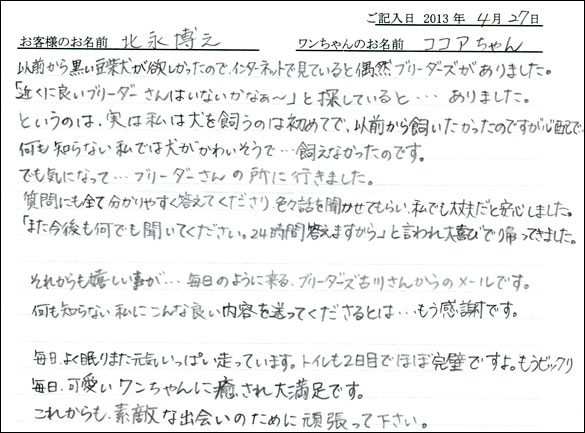 ご記入日 2013年 4月 27日
お客様のお名前 北永博之 ワンちゃんのお名前 ココアちゃん
以前から黒い豆柴犬が欲しかったので、インターネットで見ていると偶然ブリーダーズがありました。
「近くに良いブリーダーさんはいないかなぁ〜」と探していると… ありました。
というのは、実は私は犬を飼うのは初めてで、以前から飼いたかったのですが心配で、
何も知らない私では犬がかわいそうで…飼えなかったのです。
でも気になって…ブリーダーさんの所に行きました。
質問にも全て分かりやすく答えてくださり、色々話を聞かせてもらい、私でも大丈夫だと安心しました。
「また今後も何でも聞いてください。24時間答えますから」と言われ大喜びで帰ってきました。
それからも嬉しい事が…毎日のように来る、ブリーダーズ古川さんからのメールです。
何も知らない私にこんな良い内容を送ってくださるとは…もう感謝です。
毎日、よく眠りまた元気いっぱい走っています。トイレも2日目でほぼ完璧ですよ。もうビックリ
毎日、可愛いワンちゃんに癒され大満足です。
これからも、素敵な出会いのために頑張って下さい。